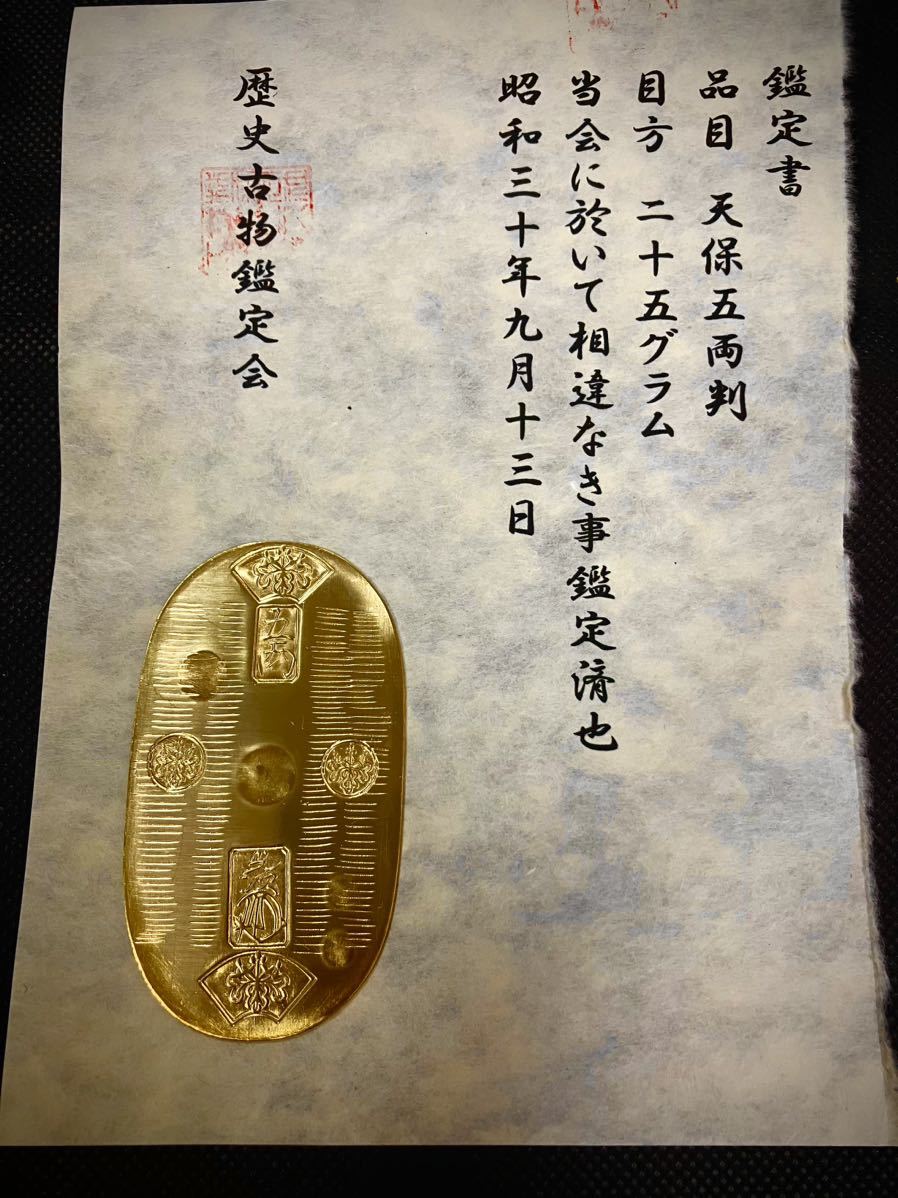 鑑定書
品目 天保五両判
目方 二十五グラム
当会に於いて相違なき事鑑定済也
昭和三十年九月十三日
歴史古物鑑定会
五両